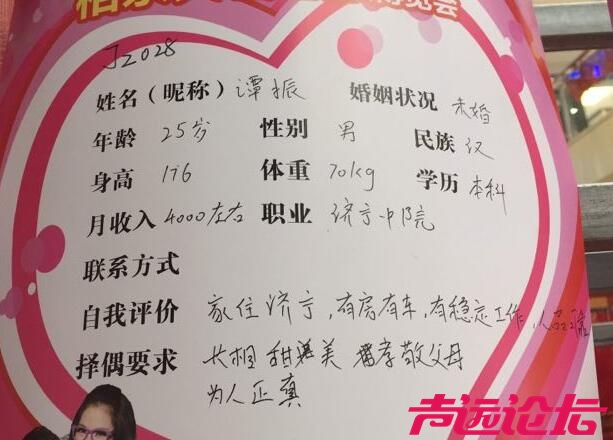 相亲
览会
J2028
姓名（昵称）谭振 婚姻状况 未婚
年龄 25岁 性别 男 民族 汉
身高 176 体重 70kg 学历 本科
月收入 4000左右 职业 济宁中院
联系方式
自我评价 家住济宁，有房有车，有稳定工作，人
择偶要求 长相甜美 孝敬父母
为人正真
声远论坛